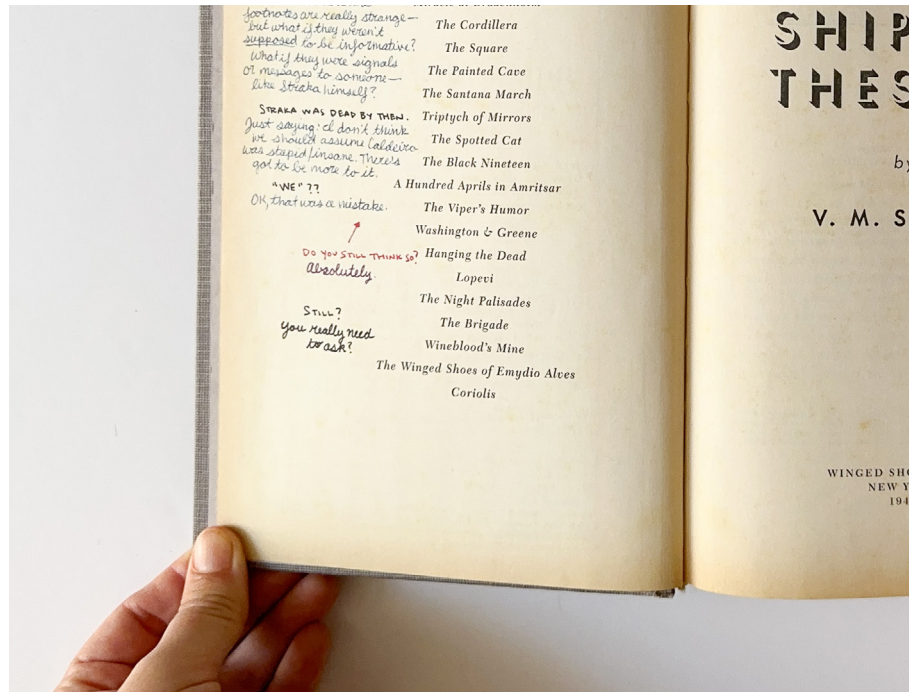 footnotes are really strange—
but what if they weren't
supposed to be informative?
What if they were signals
or messages to someone—
like Straka himself?
STRAKA WAS DEAD BY THEN.
Just saying: I don't think
we should assume Caldeira
was stupid/insane. There's
got to be more to it.
"WE"??
OK, that was a mistake.
DO YOU STILL THINK SO?
Absolutely.
STILL?
You really need
to ask?
The Cordillera
The Square
The Painted Cave
The Santana March
Triptych of Mirrors
The Spotted Cat
The Black Nineteen
A Hundred Aprils in Amritsar
The Viper's Humor
Washington & Greene
Hanging the Dead
Lopevi
The Night Palisades
The Brigade
Wineblood's Mine
The Winged Shoes of Emydio Alves
Coriolis
SHIP
THES
by
V. M. S
WINGED SHO
NEW Y
194